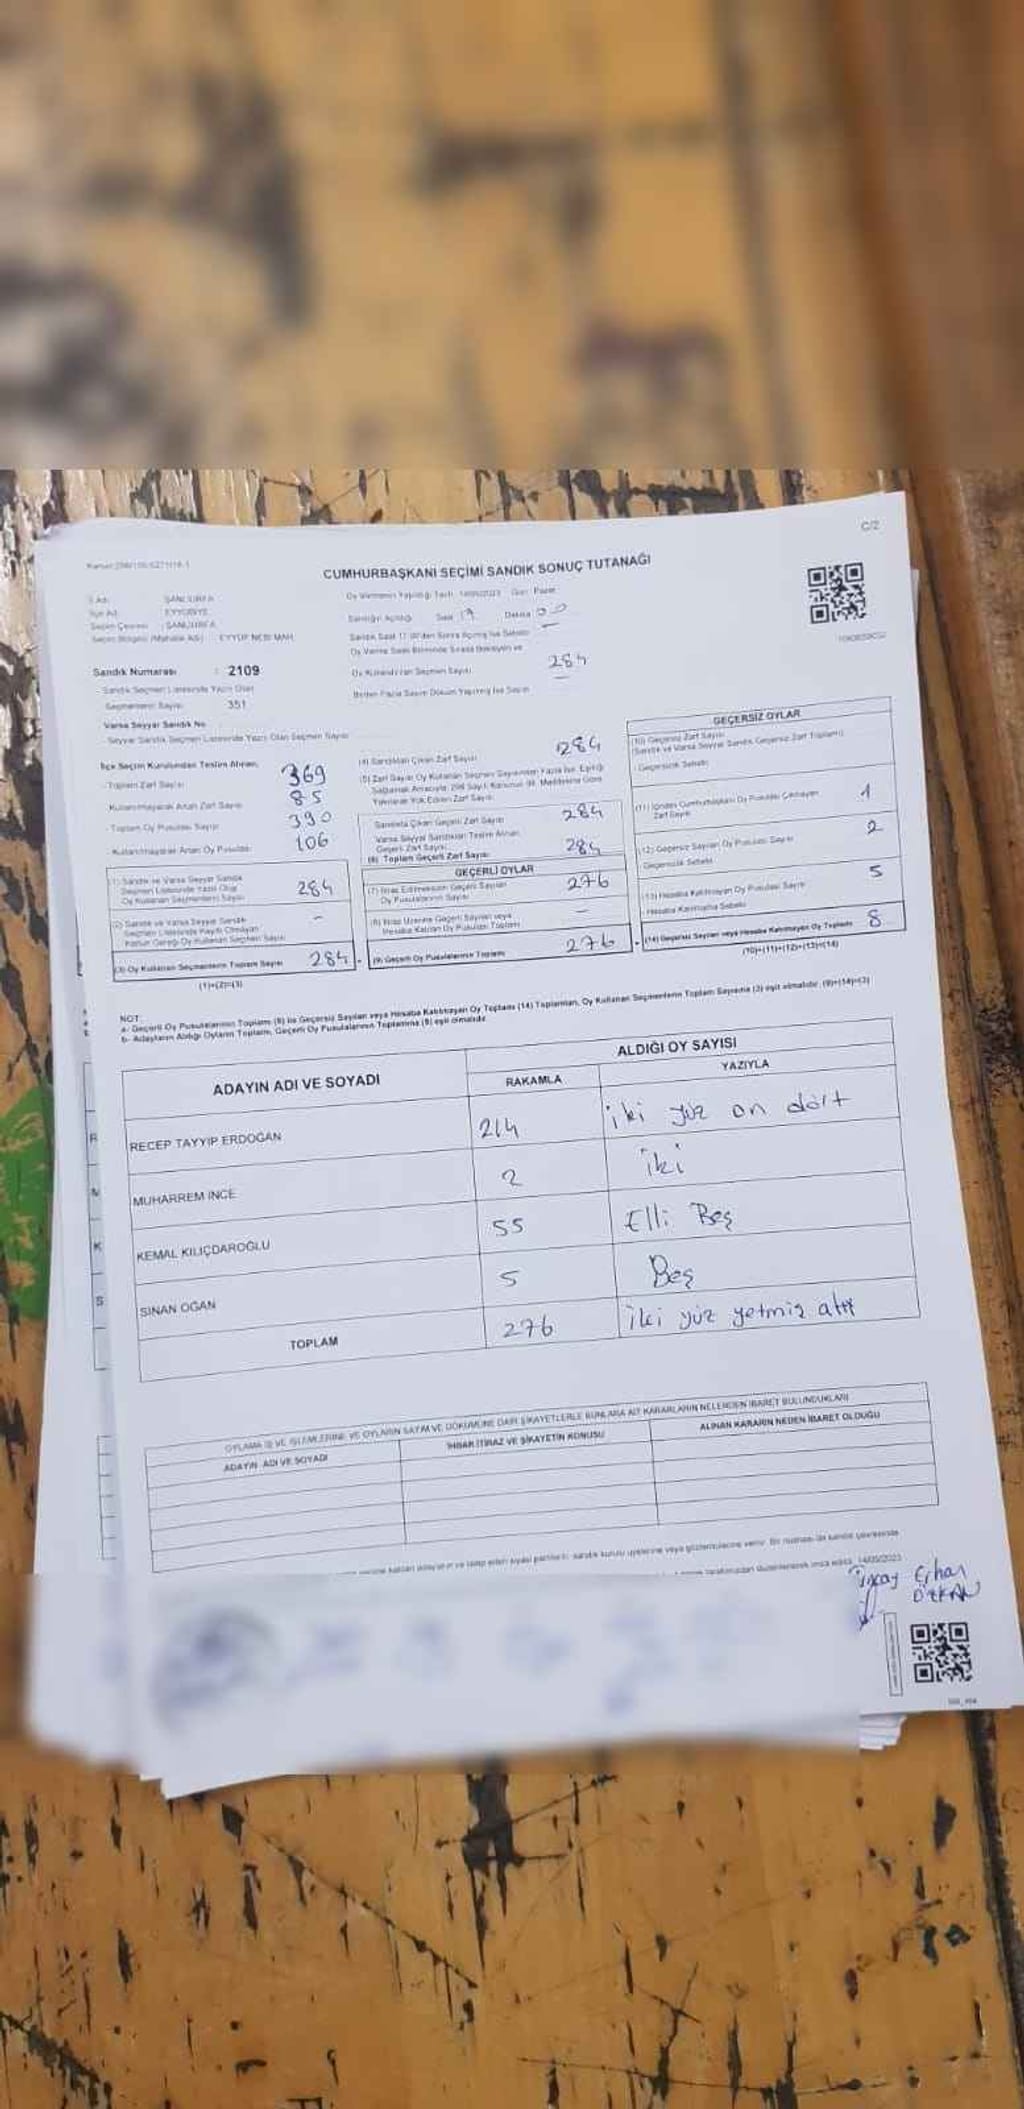 C/2
CUMHURBAŞKANI SEÇİMİ SANDIK SONUÇ TUTANAĞI
İl Adı : ŞANLIURFA
İlçe Adı : EYYÜBİYE
Seçim Çevresi : ŞANLIURFA
Seçim Bölgesi (Mahalle Adı) : EYYÜP NEBİ MAH.
Sandık Numarası : 2109
Sandık Seçmen Listesinde Yazılı Olan
Seçmenlerin Sayısı : 351
Varsa Seyyar Sandık No
Seyyar Sandık Seçmen Listesinde Yazılı Olan Seçmen Sayısı
Oy Vermenin Yapıldığı Tarih : 14/05/2023 Gün: Pazar
Sandığın Açıldığı Saat 17 Dakika 00
Oy Kullandıran Seçmen Sayısı 284
İlçe Seçim Kurulundan Teslim Alınan;
Toplam Zarf Sayısı 369
Kullanılmayarak Artan Zarf Sayısı 85
Toplam Oy Pusulası Sayısı 390
Kullanılmayarak Artan Oy Pusulası 106
(1) Sandık ve Varsa Seyyar Sandık
Seçmen Listesinde Yazılı Olup
Oy Kullanan Seçmenlerin Sayısı 284
(2) Sandık ve Varsa Seyyar Sandık
Seçmen Listesinde Kayıtlı Olmayan
Kanun Gereği Oy Kullanan Seçmen Sayısı -
(3) Oy Kullanan Seçmenlerin Toplam Sayısı 284
(1)+(2)=(3)
(4) Sandıktan Çıkan Zarf Sayısı 284
Sandıkta Çıkan Geçerli Zarf Sayısı 284
Varsa Seyyar Sandıktan Teslim Alınan
Geçerli Zarf Sayısı
(6) Toplam Geçerli Zarf Sayısı 284
GEÇERLİ OYLAR
(7) İtiraz Edilmeksizin Geçerli Sayılan
Oy Pusulalarının Sayısı 276
(8) İtiraz Üzerine Geçerli Sayılan veya
Hesaba Katılan Oy Pusulası Toplamı -
(9) Geçerli Oy Pusulalarının Toplamı 276
GEÇERSİZ OYLAR
(10) Geçersiz Zarf Sayısı
(Sandık ve Varsa Seyyar Sandık Geçersiz Zarf Toplamı)
Geçersizlik Sebebi
(11) İçinden Cumhurbaşkanı Oy Pusulası Çıkmayan
Zarf Sayısı 1
(12) Geçersiz Sayılan Oy Pusulası Sayısı 2
Geçersizlik Sebebi
(13) Hesaba Katılmayan Oy Pusulası Sayısı 5
Hesaba Katılmama Sebebi
(14) Geçersiz Sayılan veya Hesaba Katılmayan Oy Toplamı 8
(10)+(11)+(12)+(13)=(14)
NOT:
a- Geçerli Oy Pusulalarının Toplamı (9) ile Geçersiz Sayılan veya Hesaba Katılmayan Oy Toplamı (14) Toplamları, Oy Kullanan Seçmenlerin Toplam Sayısına (3) eşit olmalıdır. (9)+(14)=(3)
b- Adayların Aldığı Oyların Toplamı, Geçerli Oy Pusulalarının Toplamına (9) eşit olmalıdır.
ADAYIN ADI VE SOYADI
ALDIĞI OY SAYISI
RAKAMLA YAZIYLA
RECEP TAYYİP ERDOĞAN 214 iki yüz on dört
MUHARREM İNCE 2 iki
KEMAL KILIÇDAROĞLU 55 Elli Beş
SİNAN OĞAN 5 Beş
TOPLAM 276 iki yüz yetmiş altı
OYLAMA İŞ VE İŞLEMLERİNE VE OYLARIN SAYIM VE DÖKÜMÜNE DAİR ŞİKAYETLERLE BUNLARA AİT KARARLARIN NELERDEN İBARET BULUNDUKLARI
ADAYIN ADI VE SOYADI
İHBAR İTİRAZ VE ŞİKAYETİN KONUSU
ALINAN KARARIN NEDEN İBARET OLDUĞU
14/05/2023
Erhan
ÖZKAN